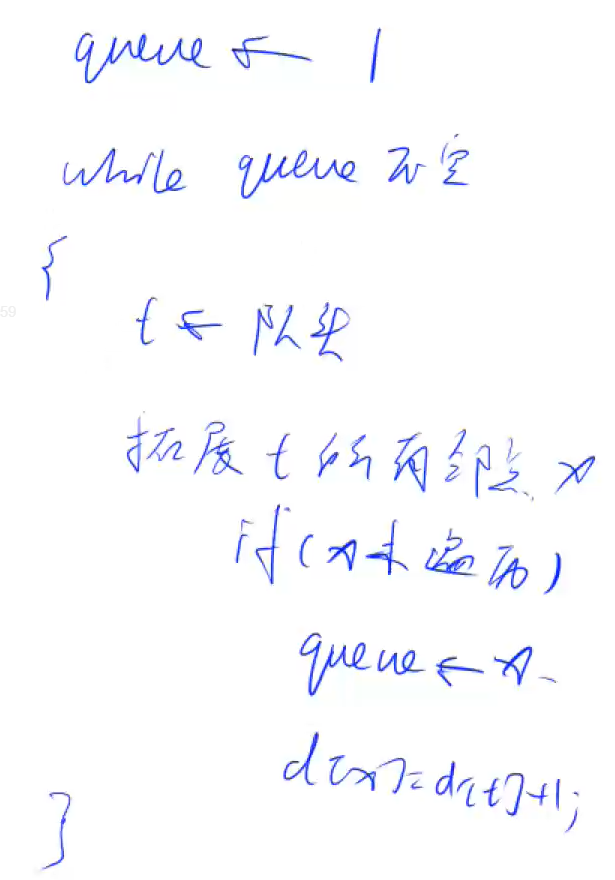 queue ← 1
while queue 不空
{
t ← 队头
拓展 t 所有邻点 x
if (x未遍历)
queue ← x
d[x] = d[t] + 1;
}
59